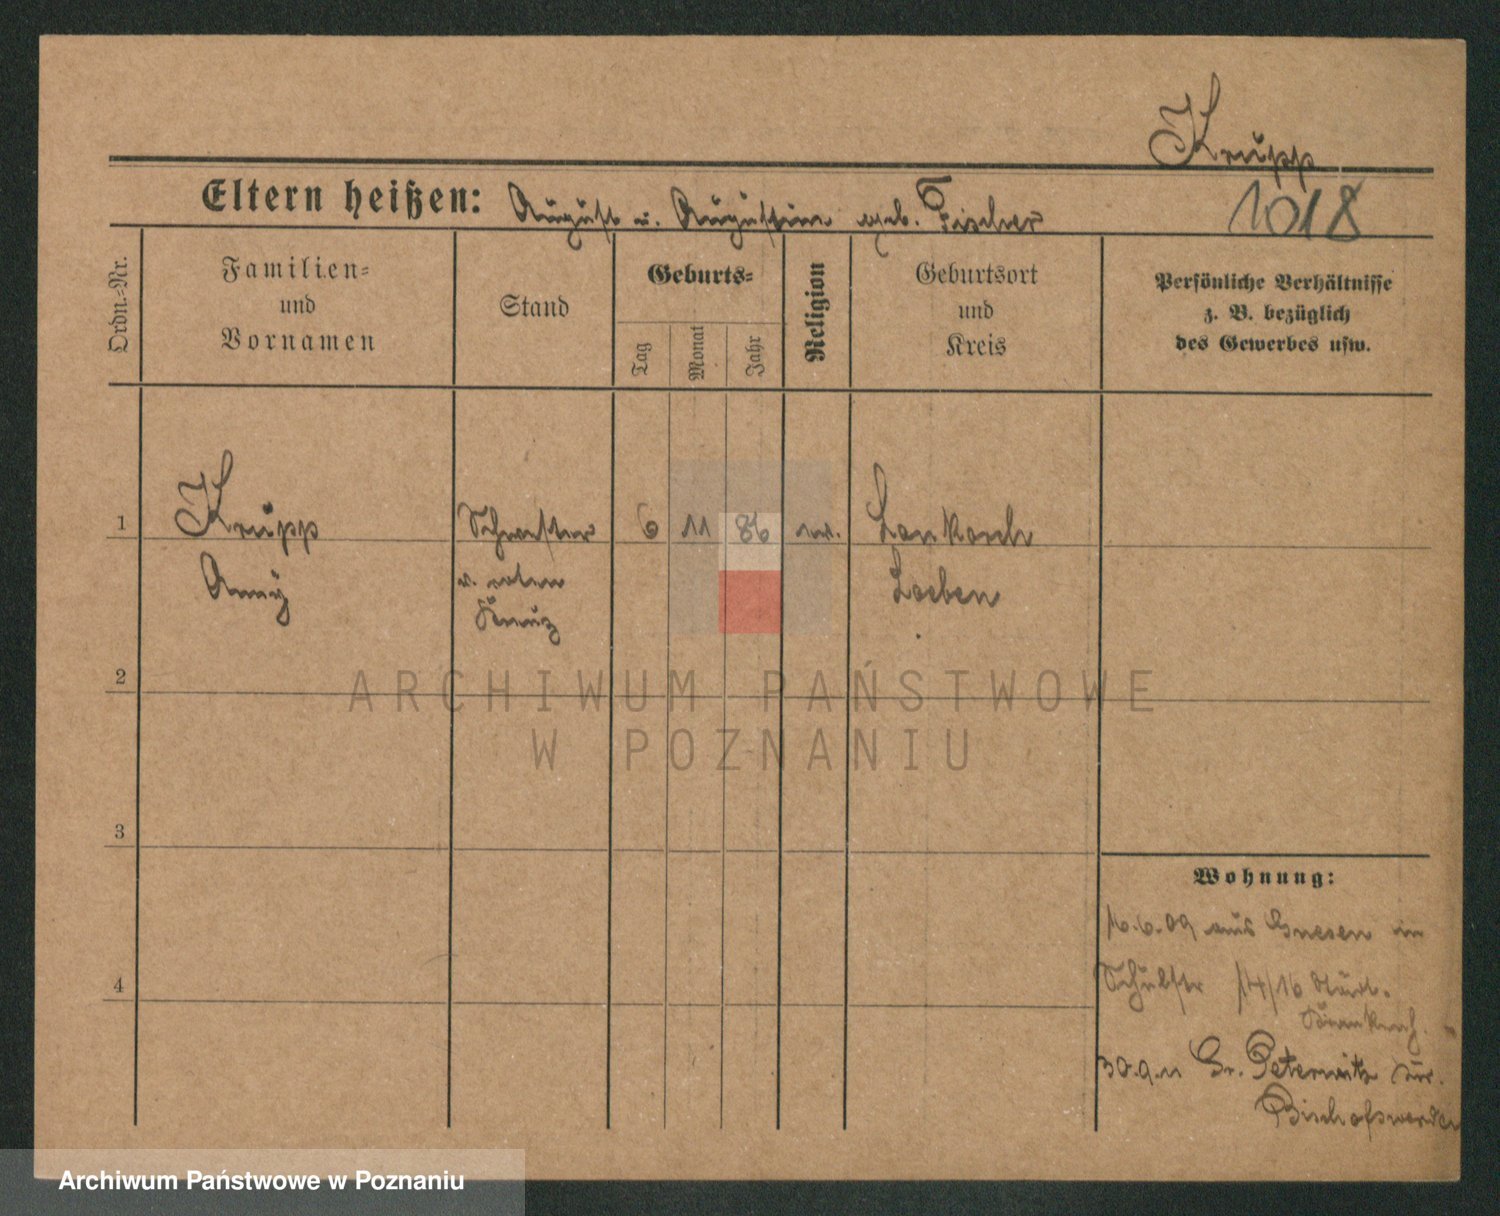 Krupp
Eltern heißen: August u. Augustine geb. Fischer 1018
Ordn.-Nr.
Familien-
und
Vornamen
Stand
Geburts-
Tag
Monat
Jahr
Religion
Geburtsort
und
Kreis
Persönliche Verhältnisse
z. B. bezüglich
des Gewerbes usw.
1 Krupp Schwester 6 11 86 ev.
Anny v. roten Loeben
Kreuz
2
3
4
Wohnung:
16.6.09 aus Gnesen in
Schulstr 14/16 Städt.
Krankenh.
30.9.11 Gr. Peterwitz
Bischofswerder
ARCHIWUM PAŃSTWOWE
W POZNANIU
Archiwum Państwowe w Poznaniu